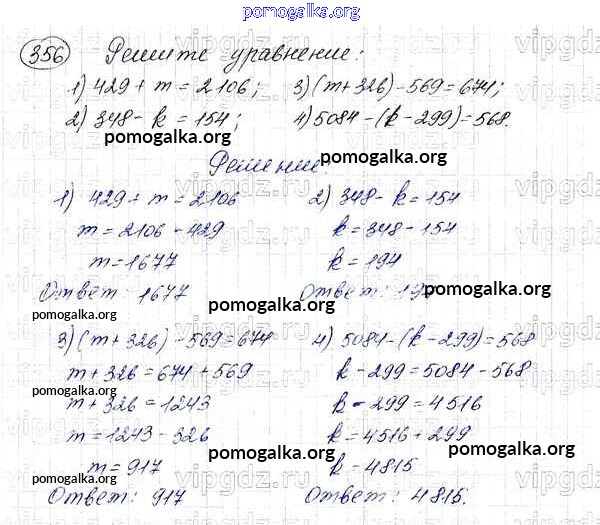 pomogalka.org
356 Решите уравнение:
1) 429 + m = 2106; 3) (m+326) - 569 = 674;
2) 348 - k = 154; 4) 5084 - (k - 299) = 568.
pomogalka.org pomogalka.org
Решение:
1) 429 + m = 2106 2) 348 - k = 154
m = 2106 - 429 k = 348 - 154
m = 1677 k = 194
pomogalka.org pomogalka.org
Ответ: 1677 Ответ: 194
pomogalka.org pomogalka.org
3) (m + 326) - 569 = 674 4) 5084 - (k - 299) = 568
m + 326 = 674 + 569 k - 299 = 5084 - 568
pomogalka.org pomogalka.org
m + 326 = 1243 k - 299 = 4516
m = 1243 - 326 k = 4516 + 299
pomogalka.org pomogalka.org
m = 917 k = 4815
Ответ: 917 Ответ: 4815.
vipgdz.ru